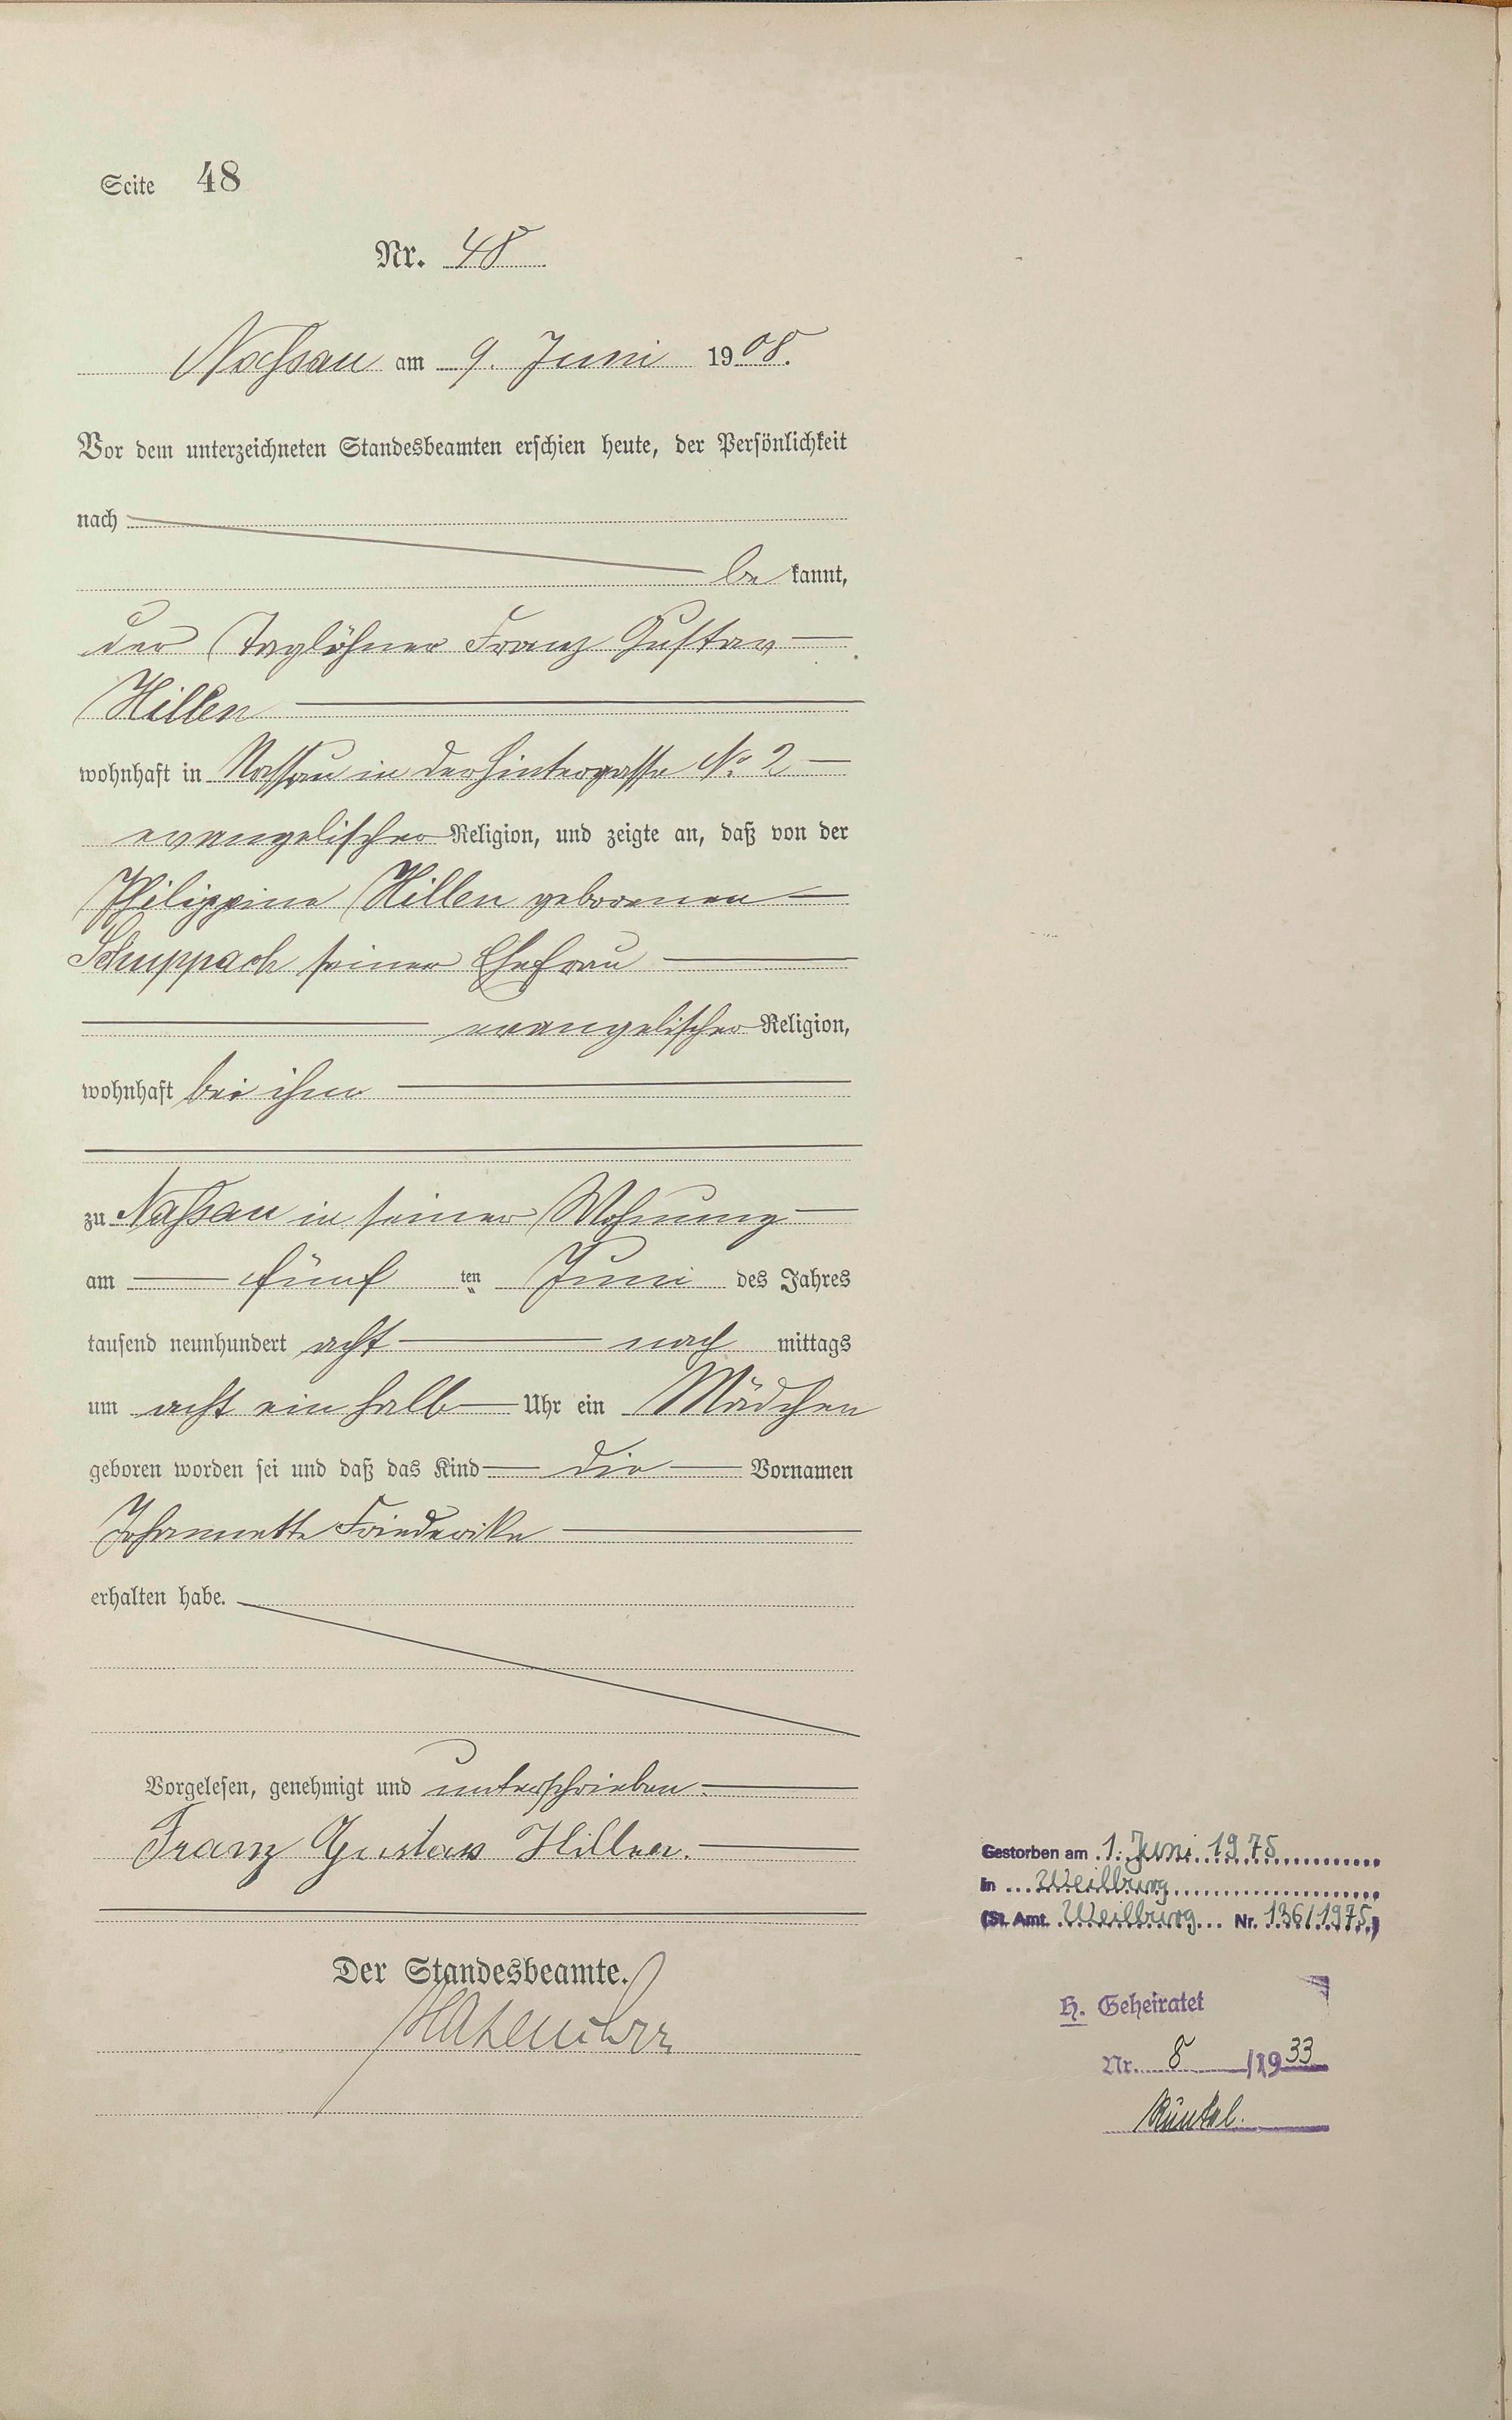 Seite 48
Nr. 48
Nassau am 9. Juni 1908.
Vor dem unterzeichneten Standesbeamten erschien heute, der Persönlichkeit
nach
be kannt,
der Taglöhner Franz Gustav
Hillen
wohnhaft in Nassau in der Hintergasse No. 2
evangelischer Religion, und zeigte an, daß von der
Philippine Hillen geborenen
Schuppach seiner Ehefrau
evangelischer Religion,
wohnhaft bei ihm
zu Nassau in seiner Wohnung
am fünf ten Juni des Jahres
tausend neunhundert acht nach mittags
um acht ein halb Uhr ein Mädchen
geboren worden sei und daß das Kind die Vornamen
Johannette Friederike
erhalten habe.
Vorgelesen, genehmigt und unterschrieben.
Franz Gustav Hillen.
Der Standesbeamte.
Gestorben am 1. Juni 1975
in Weilburg
(St. Amt. Weilburg Nr. 136/1975)
H. Geheiratet
Nr. 8 /1933